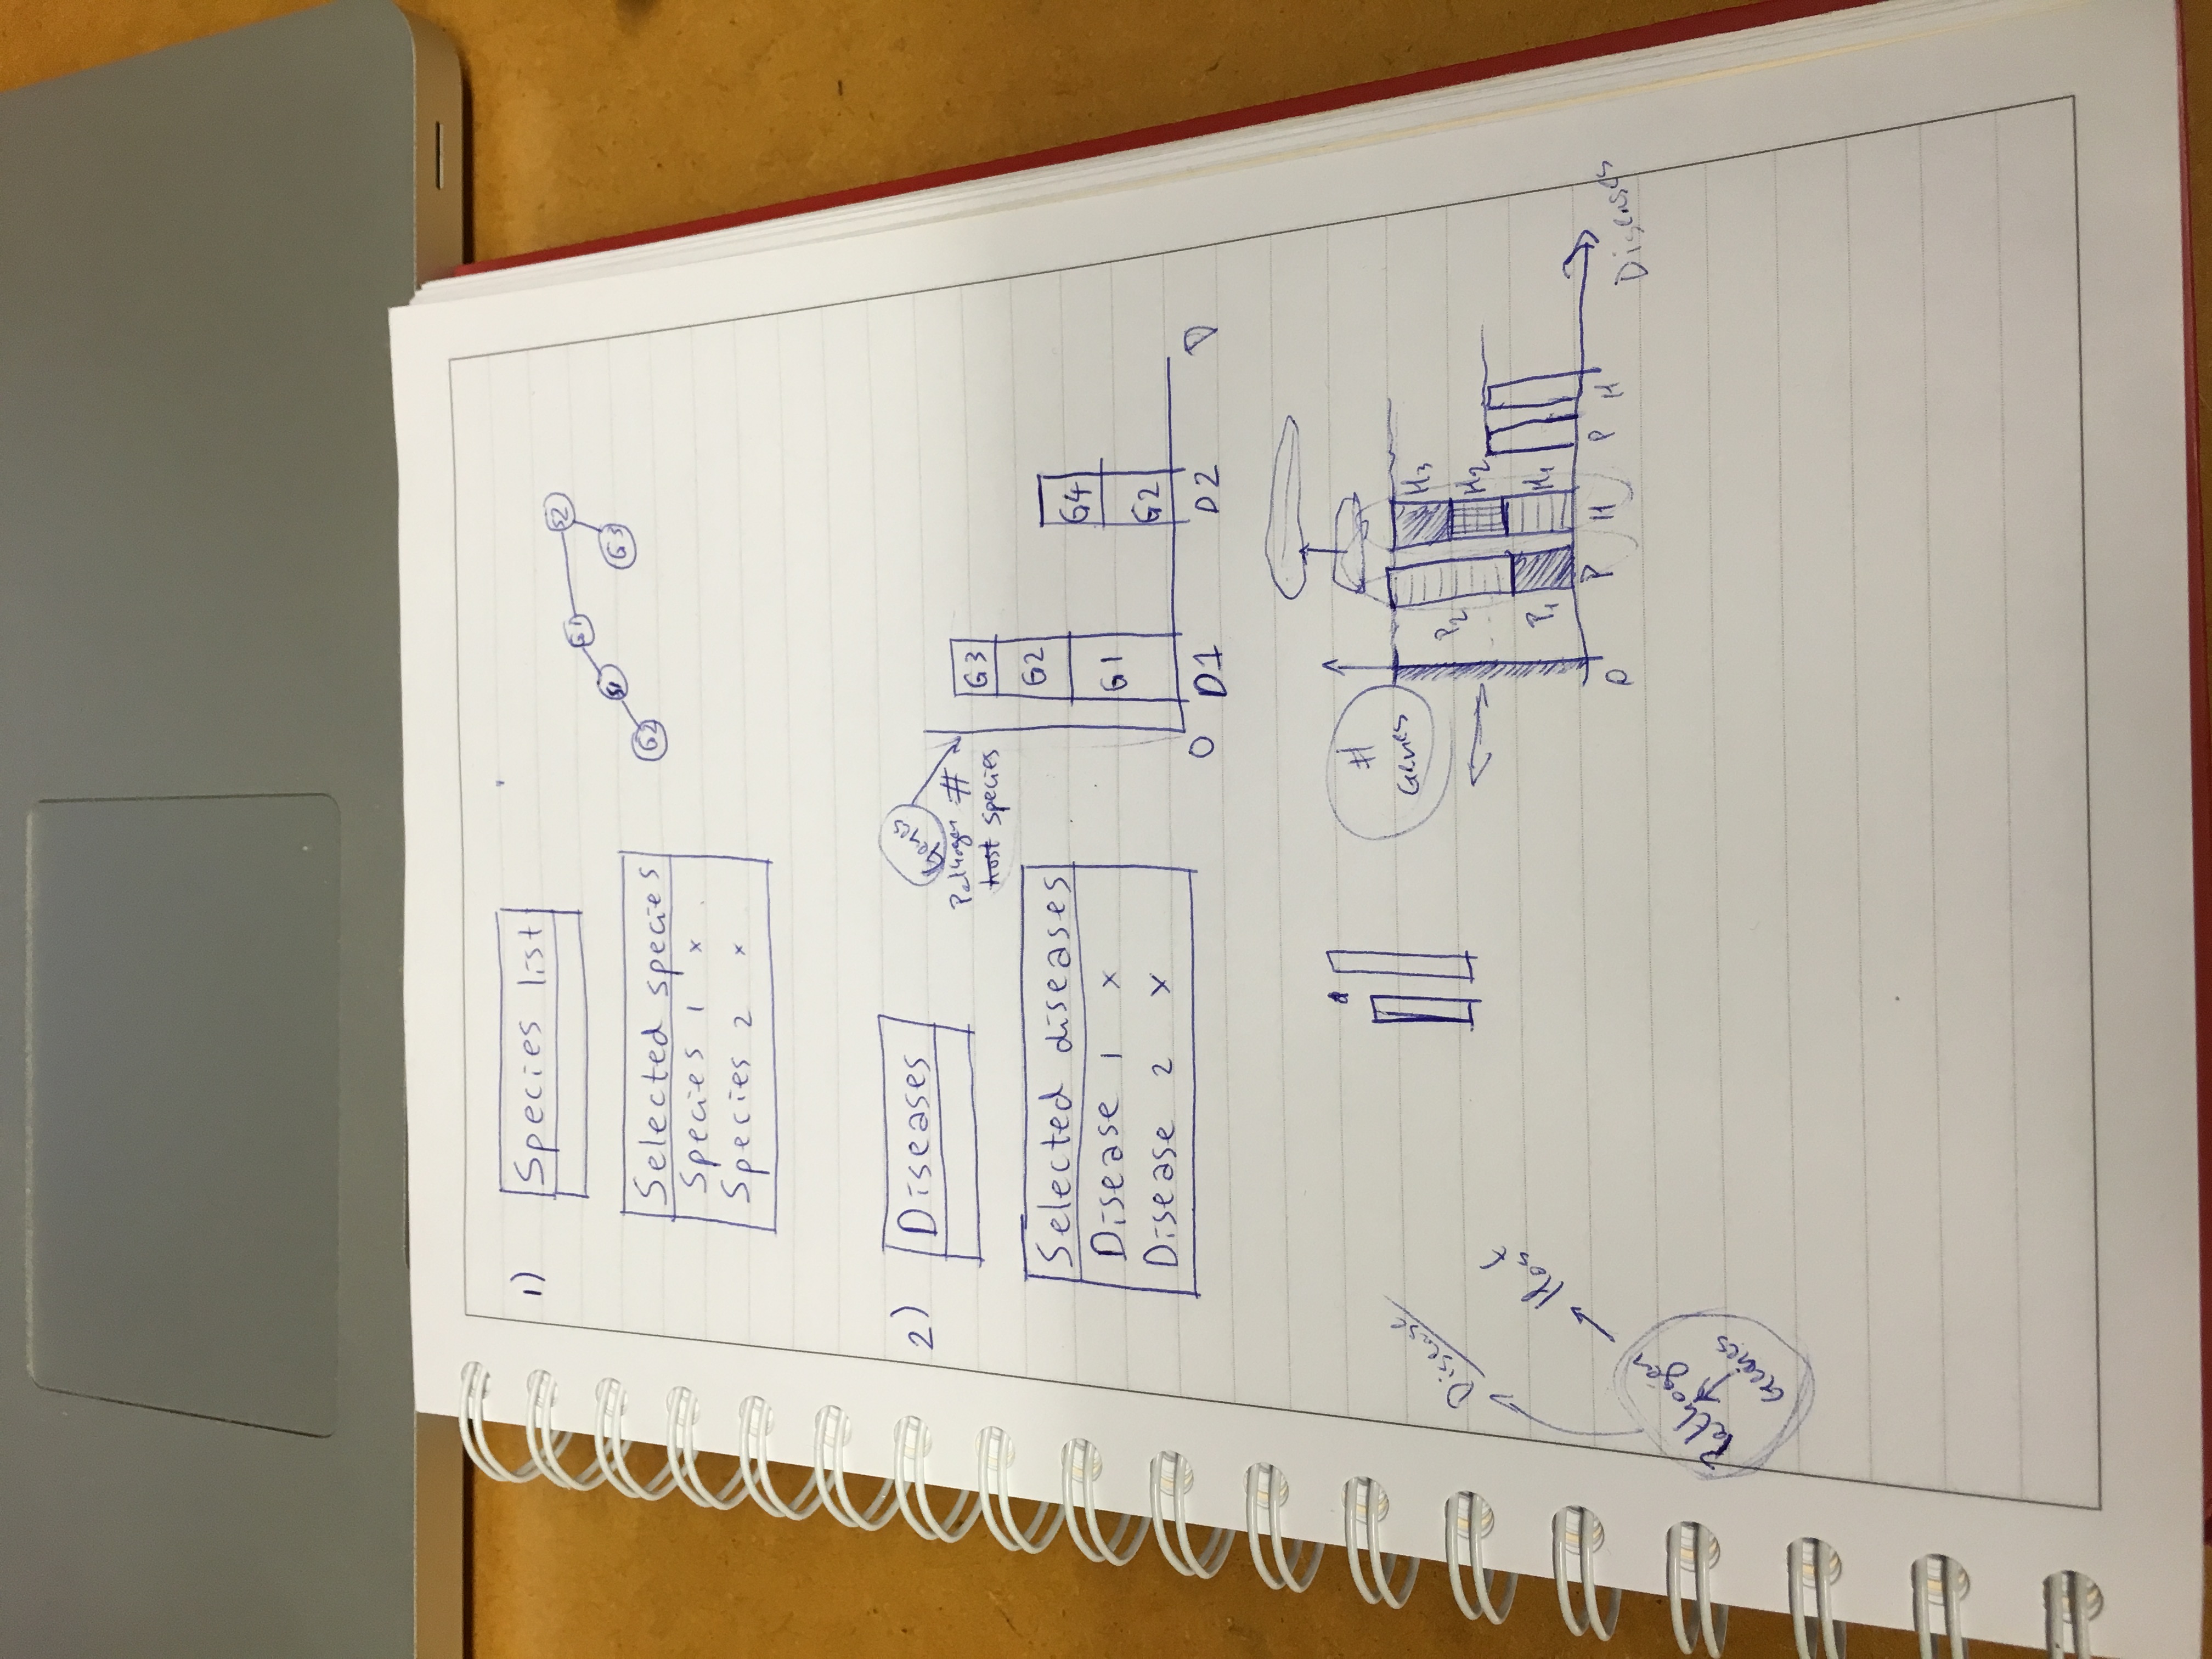 1)
Species list
Selected species
Species 1 x
Species 2 x
G2
S1
G1
S2
G3
2)
Diseases
Selected diseases
Disease 1 x
Disease 2 x
Genes
Pathogen #
host species
G3
G2
G1
G4
G2
O D1 D2 D
#
Genes
P2
P1
H3
H2
H1
O P H P H
Diseases
Disease
Host
Pathogen
Genes